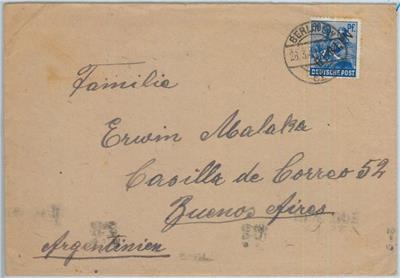 BERLIN
Pf
DEUTSCHE POST
Familie
Erwin Malaka
Casilla de Correo 52
Buenos Aires
Argentinien